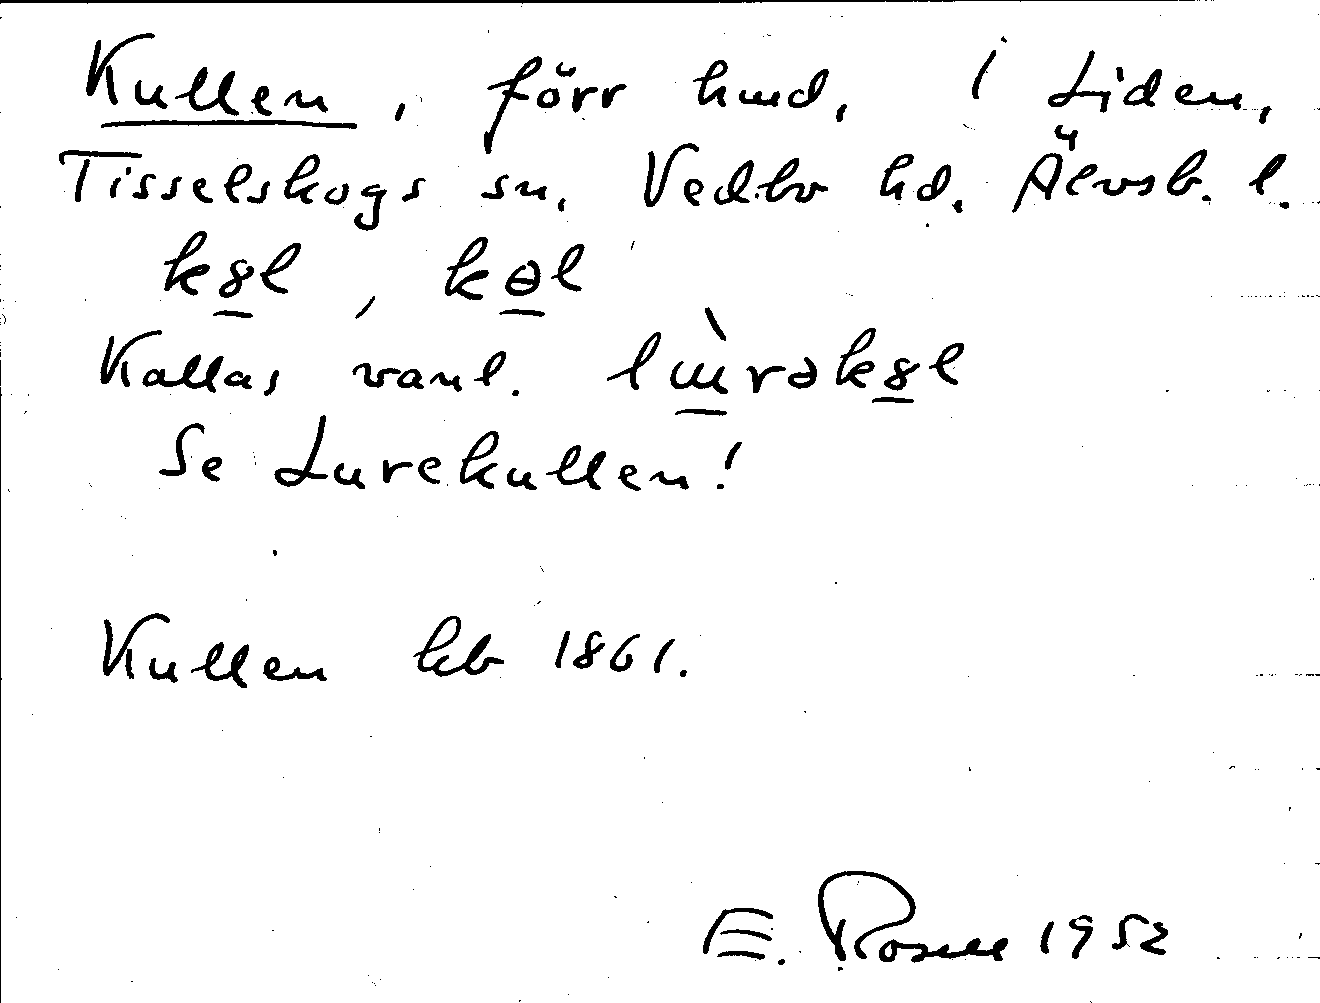 Kullen, förr hmd, i Liden,
Tisselskogs sn. Vedbo hd. Älvsb. l.
k8l, kɵl
Kallas vanl. lɯ̀rək8l
Se Lurekullen!
Kullen kb 1861.
E. Rosell 1952